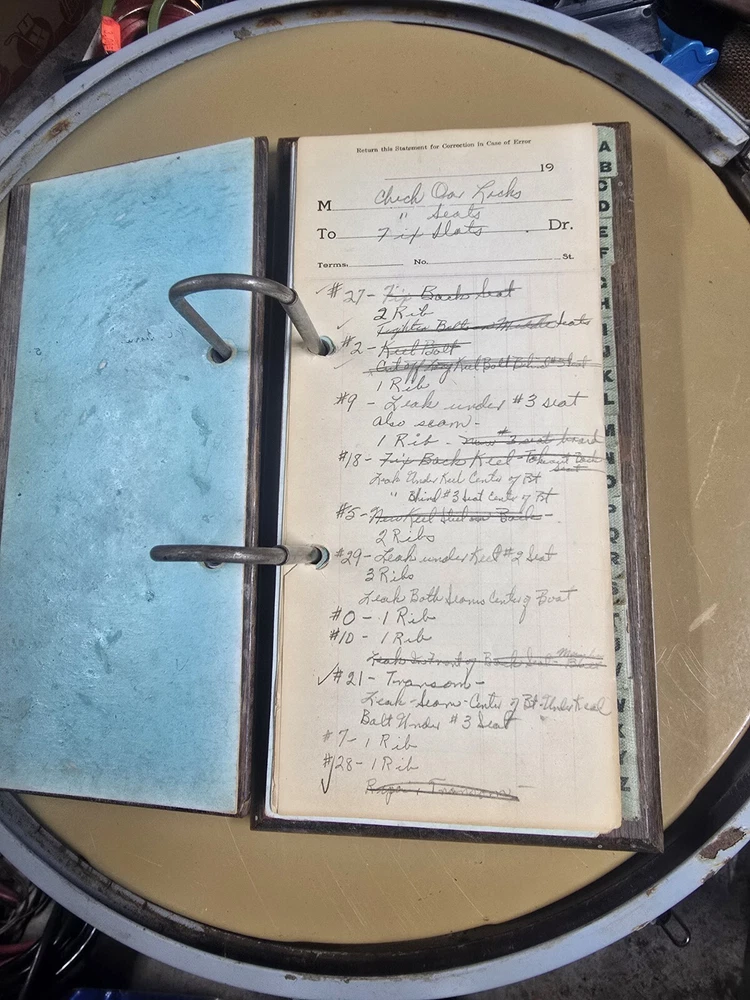 Return this Statement for Correction in Case of Error
19
M Check Oar Locks
" Seats
To Fix Slots . Dr.
Terms. No. St.
#27- Fix Back Seat
2 Rib
Tighten Bolts on Seats
#2- Keel Bolt
Cut off Keel Bolt Behind Seat
1 Rib
#9 - Leak under #3 seat
also seam -
1 Rib - New #3 seat board
#18- Fix Back Keel - Back
Seat
Leak Under Keel Center of Bt
" Bhind #3 Seat Center of Bt
#5- New Keel Back -
2 Ribs
#29- Leak under Keel #2 Seat
3 Ribs
Leak Both Seams Center of Boat
#0 - 1 Rib
#10 - 1 Rib
Leak In Front of Back Seat -
✓#21- Transom -
Leak - Seam - Center of Bt - Under Keel
Bolt Under #3 Seat
#7- 1 Rib
#28- 1 Rib
A
B
C
D
E
F
G
H
I
J
K
L
M
N
O
P
Q
R
S
T
U
V
W
X
Y
Z